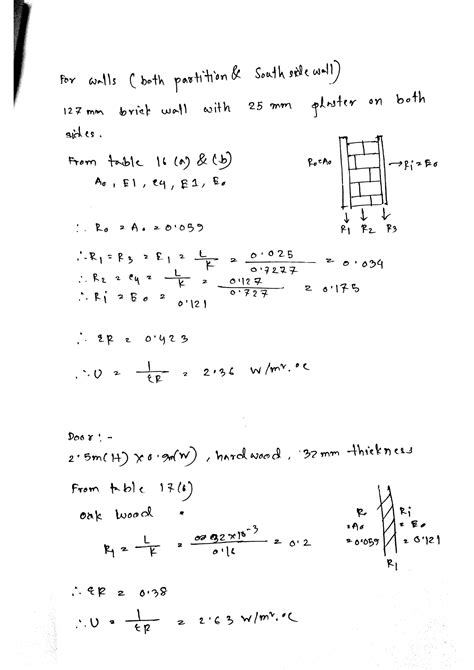 For walls (both partition & South side wall)
127 mm brick wall with 25 mm plaster on both
sides.
From table 16 (a) & (b)
A₀, E1, C4, E1, E₀
R₀=A₀
→Ri = E₀
R₁ R₂ R₃
∴ R₀ = A₀ = 0.059
∴ R₁ = R₃ = E₁ = L/K = 0.025/0.7277 = 0.034
∴ R₂ = C4 = L/K = 0.127/0.727 = 0.175
∴ Ri = E₀ = 0.121
∴ ΣR = 0.423
∴ U = 1/ΣR = 2.36 W/m². °C
Door : -
2.5m(H) X 0.9m(W), hardwood, 32 mm thickness
From table 17(b)
oak wood
R₁ = L/K = 32×10⁻³/0.16 = 0.2
R₀ Ri
=A₀ = E₀
=0.059 = 0.121
R₁
∴ ΣR = 0.38
∴ U = 1/ΣR = 2.63 W/m². °C